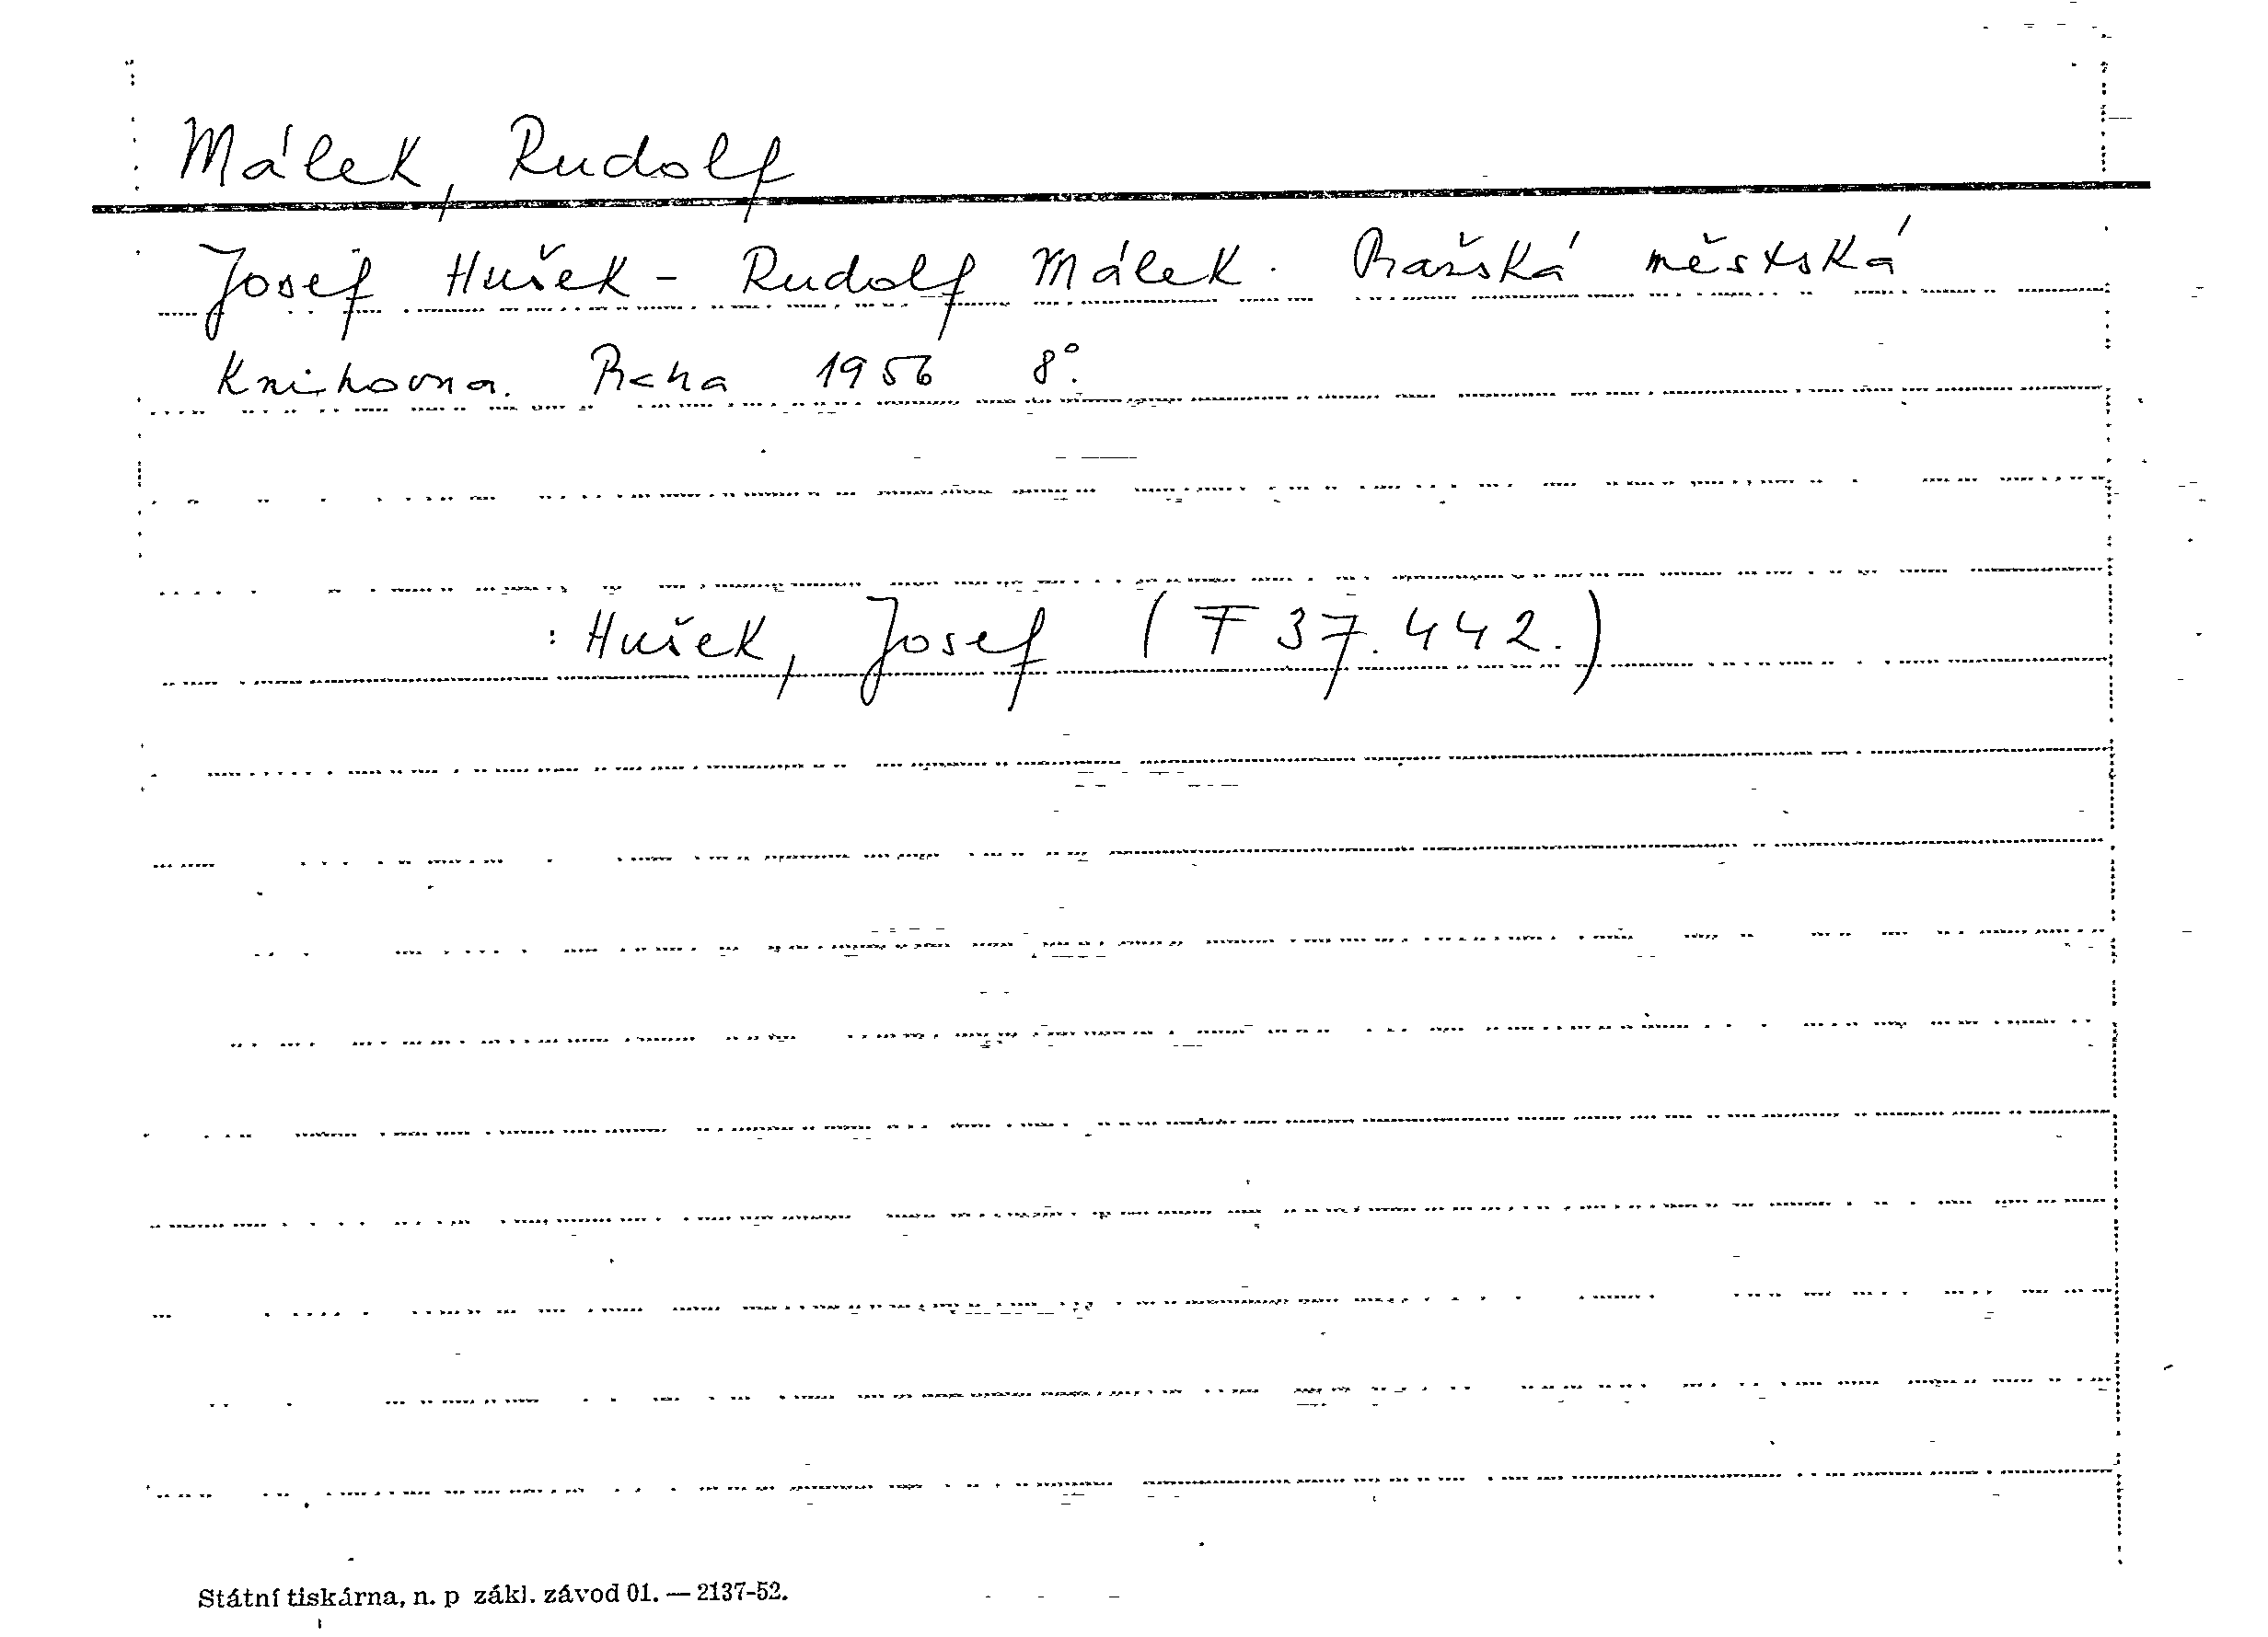 Málek, Rudolf
Josef Hušek - Rudolf Málek. Pražská městská
Knihovna. Praha 1956 8°.
: Hušek, Josef (F 37.442.)
Státní tiskárna, n. p zákl. závod 01. — 2137-52.